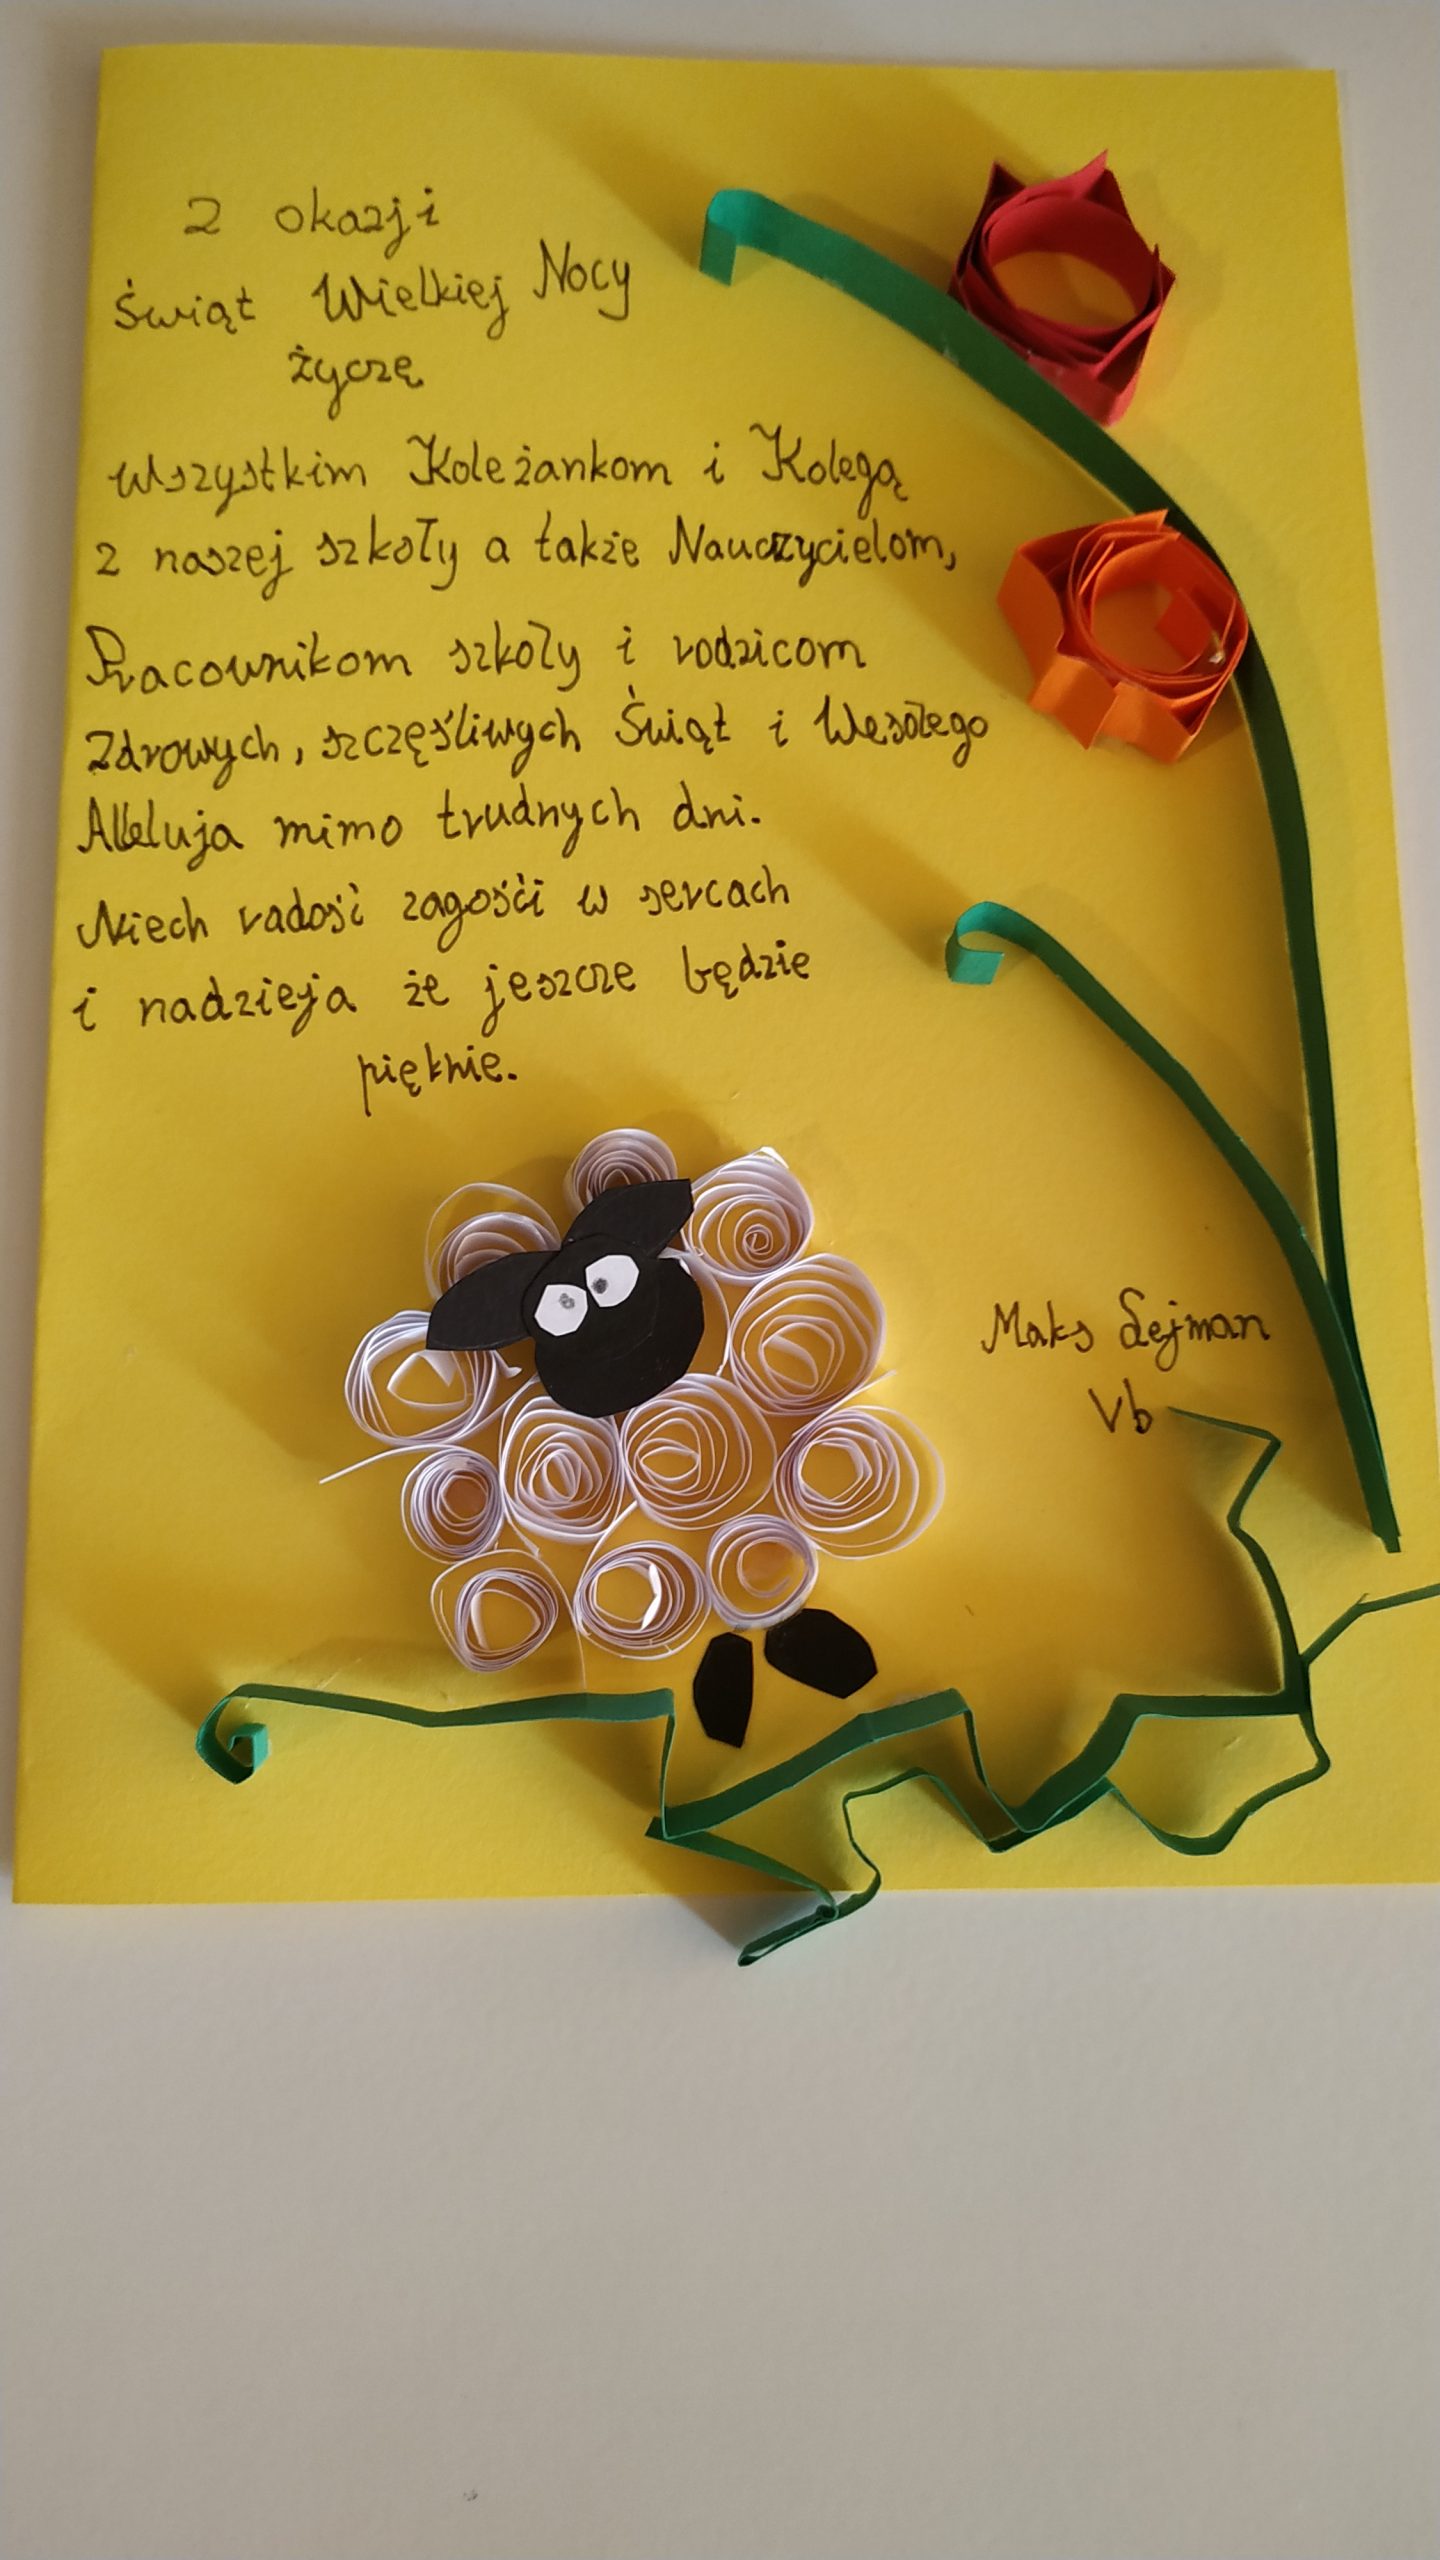 Z okazji
Świąt Wielkiej Nocy
życzę
wszystkim Koleżankom i Kolegą
z naszej szkoły a także Nauczycielom,
Pracownikom szkoły i rodzicom
Zdrowych, szczęśliwych Świąt i Wesołego
Alleluja mimo trudnych dni.
Niech radość zagości w sercach
i nadzieja że jeszcze będzie
pięknie.
Maks Sejman
Vb